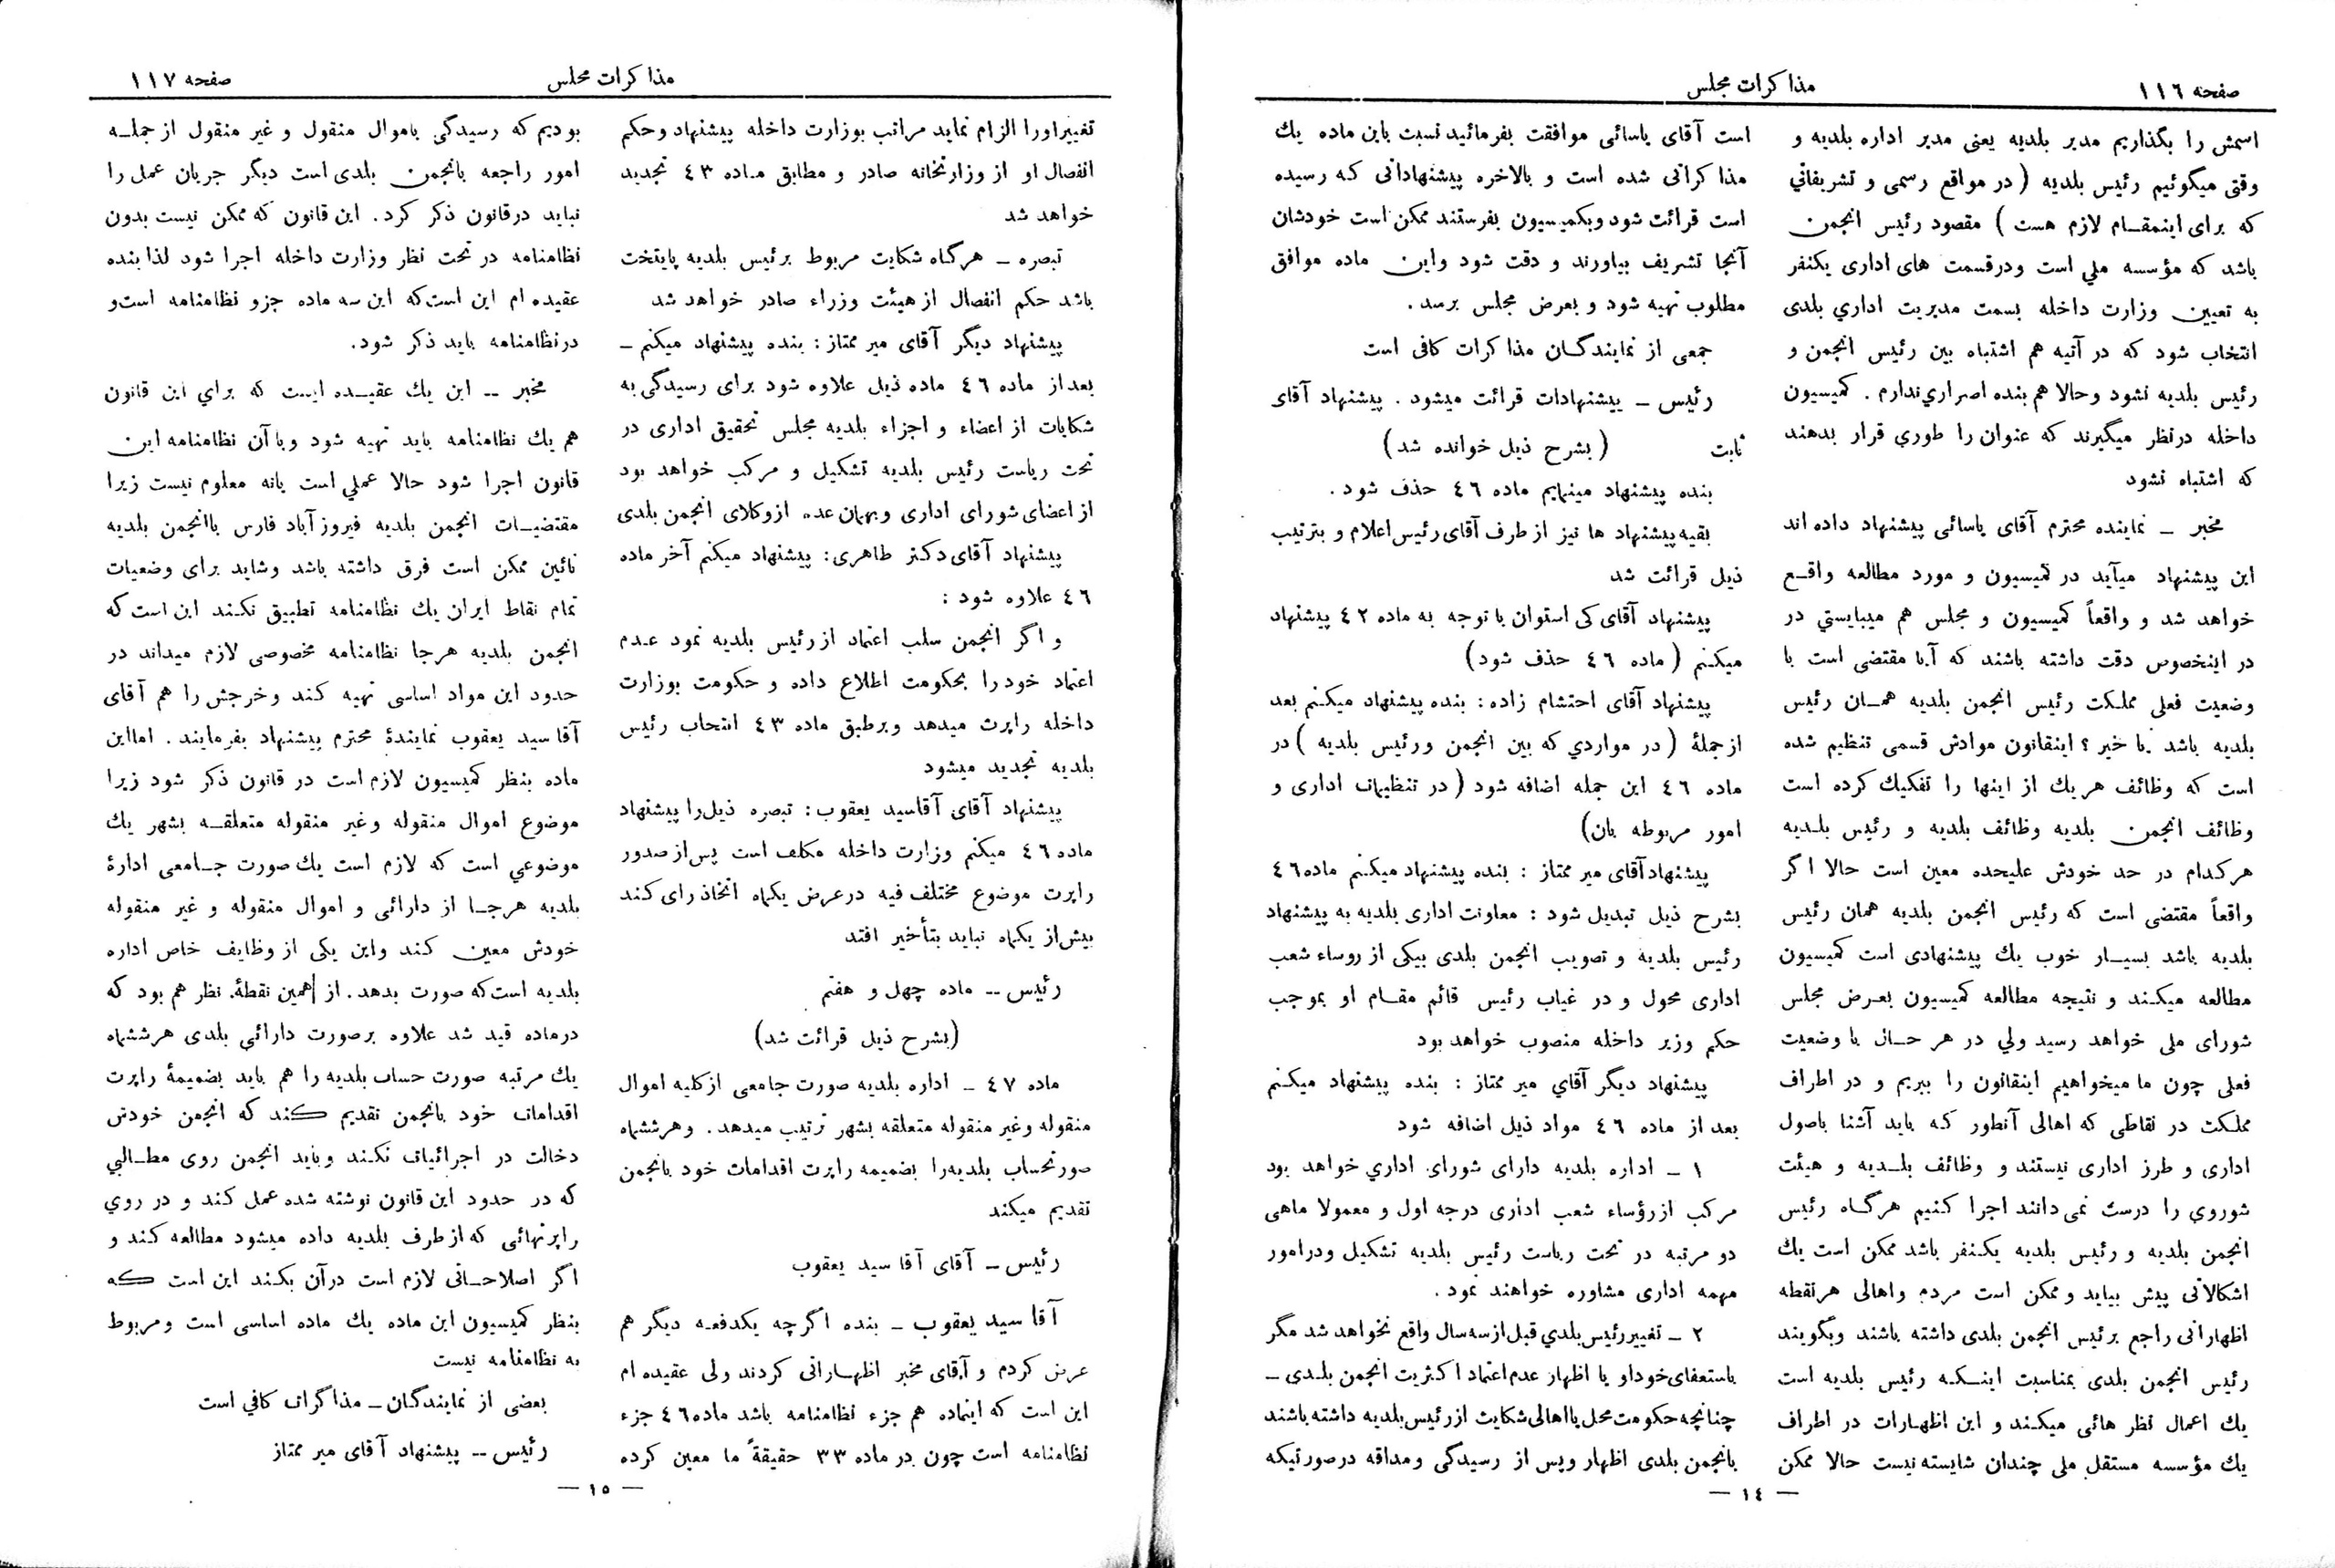 صفحه ١١٦
مذاکرات مجلس
اسمش را بگذاریم مدیر بلدیه یعنی مدیر اداره بلدیه و
وقتی میگوئیم رئیس بلدیه ( در مواقع رسمی و تشریفاتی
که برای اینمقام لازم هست ) مقصود رئیس انجمن
باشد که مؤسسه ملی است ودرقسمت های اداری یکنفر
به تعیین وزارت داخله بسمت مدیریت اداري بلدی
انتخاب شود که در آتیه هم اشتباه بین رئیس انجمن و
رئیس بلدیه نشود وحالا هم بنده اصراري ندارم . کمیسیون
داخله درنظر میگیرند که عنوان را طوري قرار بدهند
که اشتباه نشود
مخبر ـ نماینده محترم آقای یاسائی پیشنهاد داده اند
این پیشنهاد میآید در کمیسیون و مورد مطالعه واقع
خواهد شد و واقعاً کمیسیون و مجلس هم میبایستي در
در اینخصوص دقت داشته باشند که آیا مقتضی است با
وضعیت فعلی مملکت رئیس انجمن بلدیه همان رئیس
بلدیه باشد یا خیر ؟ اینقانون موادش قسمی تنظیم شده
است که وظائف هر یك از اینها را تفکیك کرده است
وظائف انجمن بلدیه وظائف بلدیه و رئیس بلدیه
هرکدام در حد خودش علیحده معین است حالا اگر
واقعاً مقتضی است که رئیس انجمن بلدیه همان رئیس
بلدیه باشد بسیار خوب یك پیشنهادی است کمیسیون
مطالعه میکند و نتیجه مطالعه کمیسیون بعرض مجلس
شورای ملی خواهد رسید ولي در هر حال با وضعیت
فعلی چون ما میخواهیم اینقانون را ببریم و در اطراف
مملکت در نقاطی که اهالی آنطور که باید آشنا باصول
اداری و طرز اداری نیستند و وظائف بلدیه و هیئت
شوروي را درست نمی دانند اجرا کنیم هرگاه رئیس
انجمن بلدیه و رئیس بلدیه یکنفر باشد ممکن است یك
اشکالاتی پیش بیاید و ممکن است مردم واهالی هرنقطه
اظهاراتی راجع برئیس انجمن بلدی داشته باشند وبگویند
رئیس انجمن بلدی بمناسبت اینکه رئیس بلدیه است
یك اعمال نظر هائی میکند و این اظهارات در اطراف
یك مؤسسه مستقل ملی چندان شایسته نیست حالا ممکن
است آقای یاسائی موافقت بفرمائید نسبت باین ماده یك
مذاکراتی شده است و بالاخره پیشنهاداتی که رسیده
است قرائت شود وبکمیسیون بفرستند ممکن است خودشان
آنجا تشریف بیاورند و دقت شود واین ماده موافق
مطلوب تهیه شود و بعرض مجلس برسد .
جمعی از نمایندگان مذاکرات کافی است
رئیس ـ پیشنهادات قرائت میشود . پیشنهاد آقای
ثابت ( بشرح ذیل خوانده شد )
بنده پیشنهاد مینمایم ماده ٤٦ حذف شود .
بقیه پیشنهاد ها نیز از طرف آقای رئیس اعلام و بترتیب
ذیل قرائت شد
پیشنهاد آقای کی استوان با توجه به ماده ٤٢ پیشنهاد
میکنم ( ماده ٤٦ حذف شود )
پیشنهاد آقای احتشام زاده : بنده پیشنهاد میکنم بعد
از جملهٔ ( در مواردي که بین انجمن ورئیس بلدیه ) در
ماده ٤٦ این جمله اضافه شود ( در تنظیمات اداری و
امور مربوطه بان)
پیشنهاد آقای میر ممتاز : بنده پیشنهاد میکنم ماده ٤٦
بشرح ذیل تبدیل شود : معاونت اداری بلدیه به پیشنهاد
رئیس بلدیه و تصویب انجمن بلدی بیکی از روساء شعب
اداری محول و در غیاب رئیس قائم مقام او بموجب
حکم وزیر داخله منصوب خواهد بود
پیشنهاد دیگر آقاي میر ممتاز : بنده پیشنهاد میکنم
بعد از ماده ٤٦ مواد ذیل اضافه شود
١ ـ اداره بلدیه دارای شورای اداري خواهد بود
مرکب از رؤساء شعب اداری درجه اول و معمولا ماهی
دو مرتبه در تحت ریاست رئیس بلدیه تشکیل ودرامور
مهمه اداری مشاوره خواهند نمود .
٢ ـ تغییر رئیس بلدي قبل از سه سال واقع نخواهد شد مگر
باستعفای خود او یا اظهار عدم اعتماد اکثریت انجمن بلدی ـ
چنانچه حکومت محل یا اهالی شکایت از رئیس بلدیه داشته باشند
بانجمن بلدی اظهار وپس از رسیدگی و مداقه درصورتیکه
— ١٤ —
مذاکرات مجلس
صفحه ١١٧
تغییر اورا الزام نماید مراتب بوزارت داخله پیشنهاد وحکم
انفصال او از وزارتخانه صادر و مطابق ماده ٤٣ تجدید
خواهد شد
تبصره ـ هرگاه شکایت مربوط برئیس بلدیه پایتخت
باشد حکم انفصال از هیئت وزراء صادر خواهد شد
پیشنهاد دیگر آقای میر ممتاز : بنده پیشنهاد میکنم ـ
بعد از ماده ٤٦ ماده ذیل علاوه شود برای رسیدگی به
شکایات از اعضاء و اجزاء بلدیه مجلس تحقیق اداری در
تحت ریاست رئیس بلدیه تشکیل و مرکب خواهد بود
از اعضای شورای اداری وبهمان عده ازوکلای انجمن بلدی
پیشنهاد آقای دکتر طاهری : پیشنهاد میکنم آخر ماده
٤٦ علاوه شود :
و اگر انجمن سلب اعتماد از رئیس بلدیه نمود عدم
اعتماد خود را بحکومت اطلاع داده و حکومت بوزارت
داخله راپرت میدهد وبرطبق ماده ٤٣ انتخاب رئیس
بلدیه تجدید میشود
پیشنهاد آقای آقاسید یعقوب : تبصره ذیل را پیشنهاد
ماده ٤٦ میکنم وزارت داخله مکلف است پس از صدور
راپرت موضوع مختلف فیه درعرض یکماه اتخاذ رای کند
بیش از یکماه نباید بتأخیر افتد
رئیس -- ماده چهل و هفتم
(بشرح ذیل قرائت شد)
ماده ٤٧ ـ اداره بلدیه صورت جامعی از کلیه اموال
منقوله وغیر منقوله متعلقه بشهر ترتیب میدهد . وهرششماه
صورتحساب بلدیه را بضمیمه راپرت اقدامات خود بانجمن
تقدیم میکند
رئیس ـ آقای آقا سید یعقوب
آقا سید یعقوب ـ بنده اگرچه یکدفعه دیگر هم
عرض کردم و آقای مخبر اظهاراتی کردند ولی عقیده ام
این است که اینماده هم جزء نظامنامه باشد ماده ٤٦ جزء
نظامنامه است چون در ماده ٣٣ حقیقةً ما معین کرده
بودیم که رسیدگی باموال منقول و غیر منقول از جمله
امور راجعه بانجمن بلدی است دیگر جریان عمل را
نباید درقانون ذکر کرد . این قانون که ممکن نیست بدون
نظامنامه در تحت نظر وزارت داخله اجرا شود لذا بنده
عقیده ام این است که این سه ماده جزو نظامنامه است و
درنظامنامه باید ذکر شود .
مخبر -- این یك عقیده ایست که براي این قانون
هم یك نظامنامه باید تهیه شود وبا آن نظامنامه این
قانون اجرا شود حالا عملي است یانه معلوم نیست زیرا
مقتضیات انجمن بلدیه فیروزآباد فارس باانجمن بلدیه
نائین ممکن است فرق داشته باشد وشاید برای وضعیات
تمام نقاط ایران یك نظامنامه تطبیق نکند این است که
انجمن بلدیه هرجا نظامنامه مخصوصی لازم میداند در
حدود این مواد اساسی تهیه کند وخرجش را هم آقای
آقا سید یعقوب نمایندهٔ محترم پیشنهاد بفرمایند . امااین
ماده بنظر کمیسیون لازم است در قانون ذکر شود زیرا
موضوع اموال منقوله وغیر منقوله متعلقه بشهر یك
موضوعي است که لازم است یك صورت جامعی ادارهٔ
بلدیه هرجا از دارائی و اموال منقوله و غیر منقوله
خودش معین کند واین یکی از وظایف خاص اداره
بلدیه است که صورت بدهد . از همین نقطهٔ نظر هم بود که
درماده قید شد علاوه برصورت دارائي بلدی هرششماه
یك مرتبه صورت حساب بلدیه را هم باید بضمیمهٔ راپرت
اقدامات خود بانجمن تقدیم کند که انجمن خودش
دخالت در اجرائیات نکند وباید انجمن روی مطالبي
که در حدود این قانون نوشته شده عمل کند و در روي
راپرتهائی که از طرف بلدیه داده میشود مطالعه کند و
اگر اصلاحاتی لازم است درآن بکند این است که
بنظر کمیسیون این ماده یك ماده اساسی است ومربوط
به نظامنامه نیست
بعضی از نمایندگان ـ مذاکرات کافي است
رئیس -- پیشنهاد آقای میر ممتاز
— ١٥ —